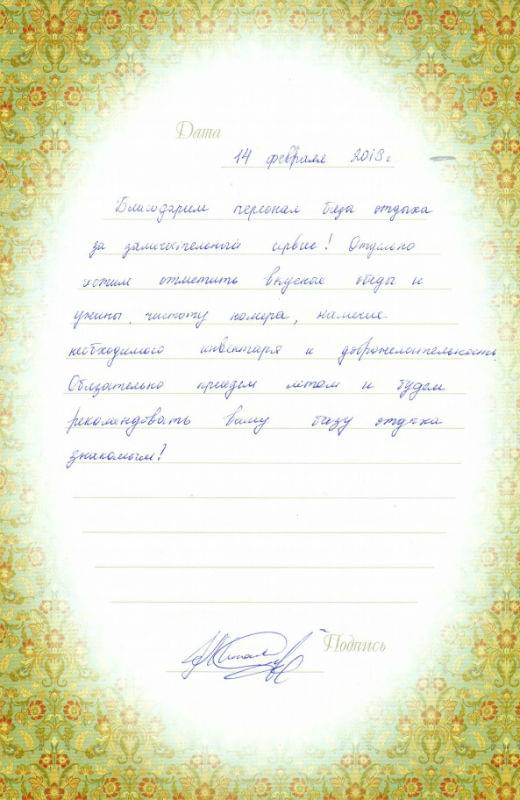 Дата
14 февраля 2013 г
Благодарим персонал базы отдыха
за замечательный сервис! Отдельно
хотим отметить вкусные обеды и
ужины, чистоту номера, наличие
необходимого инвентаря и доброжелательность.
Обязательно приедем летом и будем
рекомендовать вашу базу отдыха
знакомым!
Подпись